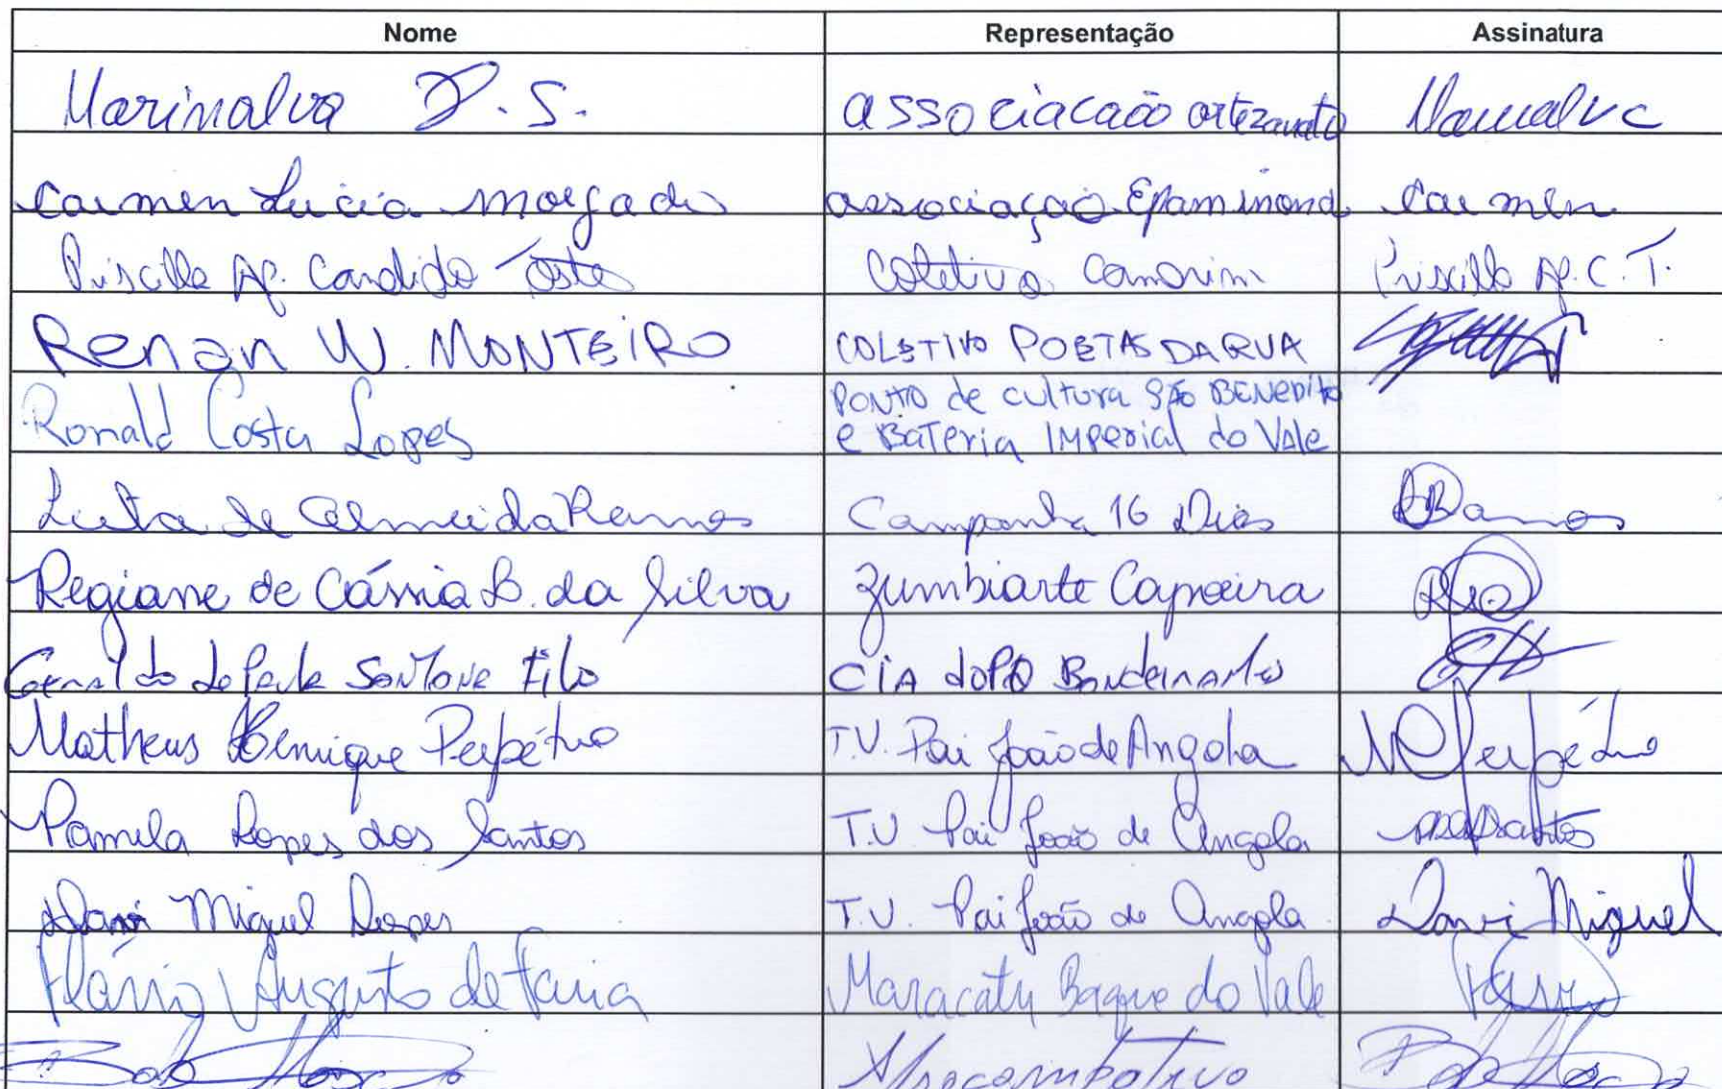 Nome Representação Assinatura
Marinalva D.S. associacaão artezanato Marinalva
Carmen Lucia morgado associaçaõ Epaminond Carmen
Priscilla Ap. Candido Coletivo Camorim Priscilla Ap.C.T.
Renan W. MONTEIRO COLETIVO POETAS DA RUA
Ronald Costa Lopes PONTO de cultura São BENEDITO
e BATeria IMPerial do VAle
de Almeida Ramos Campanha 16 Dias Ramos
Regiane de Cássia B. da Silva Zumbiarte Capoeira
Geraldo de Paula Filo CIA Bandeirantes
Matheus Henrique Perpétuo T.V. Pai joão de Angola Perpétuo
Pamela Lopes dos Santos T.U Pai joão de Angola
Davi Miguel Lopes T.U. Pai joão de Angola Davi Miguel
Flávio Augusto de Faria Maracatu Baque do Vale